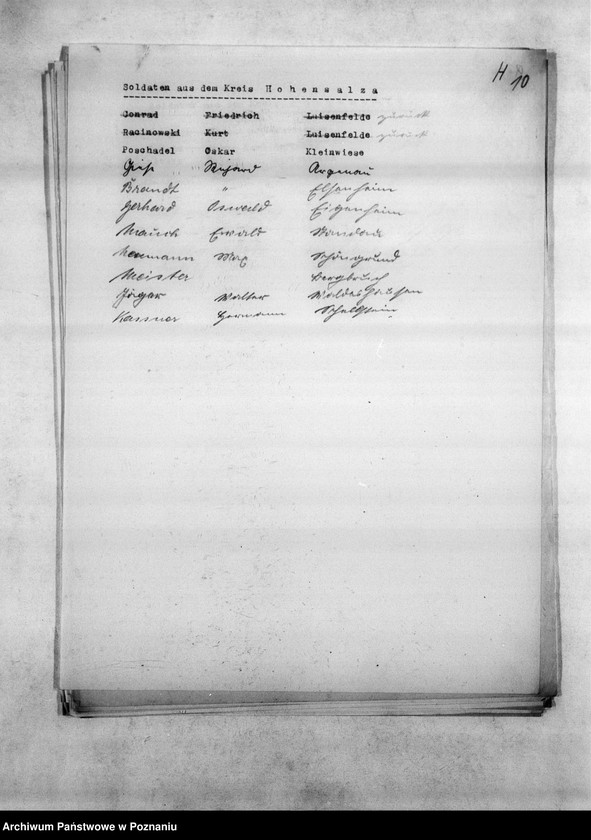 H 10
Soldaten aus dem Kreis Hohensalza
Conrad Friedrich Luisenfelde zurück
Racinowski Kurt Luisenfelde zurück
Poschadel Oskar Kleinwiese
Richard Argenau
Brandt " Elsenheim
Gerhard Oswald Eigenheim
Mauch Ewald
Neumann Max Schöngrund
Meister Bergbruch
Jäger Walter
Kassner Hermann
Archiwum Państwowe w Poznaniu